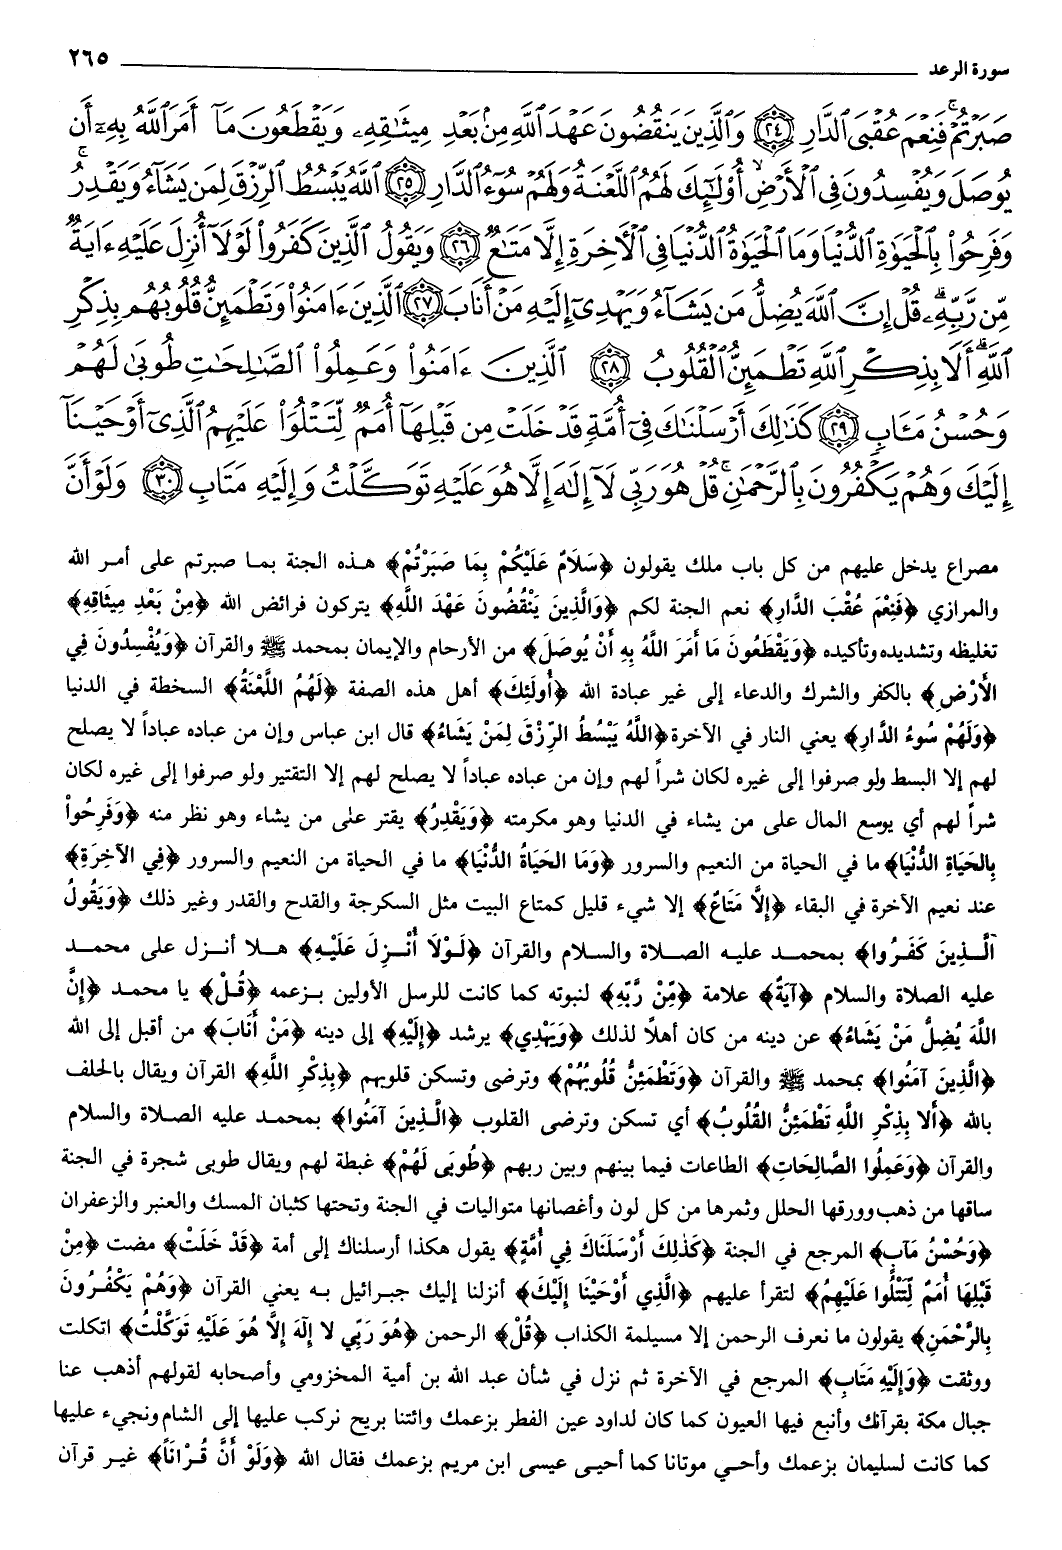 سورة الرعد ٢٦٥
صَبَرْتُمْ ۚ فَنِعْمَ عُقْبَى ٱلدَّارِ ٢٤ وَٱلَّذِينَ يَنقُضُونَ عَهْدَ ٱللَّهِ مِنۢ بَعْدِ مِيثَـٰقِهِۦ وَيَقْطَعُونَ مَآ أَمَرَ ٱللَّهُ بِهِۦٓ أَن
يُوصَلَ وَيُفْسِدُونَ فِى ٱلْأَرْضِ ۙ أُو۟لَـٰٓئِكَ لَهُمُ ٱللَّعْنَةُ وَلَهُمْ سُوٓءُ ٱلدَّارِ ٢٥ ٱللَّهُ يَبْسُطُ ٱلرِّزْقَ لِمَن يَشَآءُ وَيَقْدِرُ ۚ
وَفَرِحُوا۟ بِٱلْحَيَوٰةِ ٱلدُّنْيَا وَمَا ٱلْحَيَوٰةُ ٱلدُّنْيَا فِى ٱلْـَٔاخِرَةِ إِلَّا مَتَـٰعٌ ٢٦ وَيَقُولُ ٱلَّذِينَ كَفَرُوا۟ لَوْلَآ أُنزِلَ عَلَيْهِ ءَايَةٌ
مِّن رَّبِّهِۦ ۗ قُلْ إِنَّ ٱللَّهَ يُضِلُّ مَن يَشَآءُ وَيَهْدِىٓ إِلَيْهِ مَنْ أَنَابَ ٢٧ ٱلَّذِينَ ءَامَنُوا۟ وَتَطْمَئِنُّ قُلُوبُهُم بِذِكْرِ
ٱللَّهِ ۗ أَلَا بِذِكْرِ ٱللَّهِ تَطْمَئِنُّ ٱلْقُلُوبُ ٢٨ ٱلَّذِينَ ءَامَنُوا۟ وَعَمِلُوا۟ ٱلصَّـٰلِحَـٰتِ طُوبَىٰ لَهُمْ
وَحُسْنُ مَـَٔابٍ ٢٩ كَذَٰلِكَ أَرْسَلْنَـٰكَ فِىٓ أُمَّةٍ قَدْ خَلَتْ مِن قَبْلِهَآ أُمَمٌ لِّتَتْلُوَا۟ عَلَيْهِمُ ٱلَّذِىٓ أَوْحَيْنَآ
إِلَيْكَ وَهُمْ يَكْفُرُونَ بِٱلرَّحْمَـٰنِ ۚ قُلْ هُوَ رَبِّى لَآ إِلَـٰهَ إِلَّا هُوَ عَلَيْهِ تَوَكَّلْتُ وَإِلَيْهِ مَتَابِ ٣٠ وَلَوْ أَنَّ
مصراع يدخل عليهم من كل باب ملك يقولون ﴿سَلَامٌ عَلَيْكُمْ بِمَا صَبَرْتُمْ﴾ هذه الجنة بما صبرتم على أمر الله
والمرازي ﴿فَنِعْمَ عُقْبَ الدَّارِ﴾ نعم الجنة لكم ﴿وَالَّذِينَ يَنْقُضُونَ عَهْدَ اللَّهِ﴾ يتركون فرائض الله ﴿مِنْ بَعْدِ مِيثَاقِهِ﴾
تغليظه وتشديده وتأكيده ﴿وَيَقْطَعُونَ مَا أَمَرَ اللَّهُ بِهِ أَنْ يُوصَلَ﴾ من الأرحام والإيمان بمحمد ﷺ والقرآن ﴿وَيُفْسِدُونَ فِي
الأَرْضِ﴾ بالكفر والشرك والدعاء إلى غير عبادة الله ﴿أُولَئِكَ﴾ أهل هذه الصفة ﴿لَهُمُ اللَّعْنَةُ﴾ السخطة في الدنيا
﴿وَلَهُمْ سُوءُ الدَّارِ﴾ يعني النار في الآخرة ﴿اللَّهُ يَبْسُطُ الرِّزْقَ لِمَنْ يَشَاءُ﴾ قال ابن عباس وإن من عباده عباداً لا يصلح
لهم إلا البسط ولو صرفوا إلى غيره لكان شراً لهم وإن من عباده عباداً لا يصلح لهم إلا التقتير ولو صرفوا إلى غيره لكان
شراً لهم أي يوسع المال على من يشاء في الدنيا وهو مكرمته ﴿وَيَقْدِرُ﴾ يقتر على من يشاء وهو نظر منه ﴿وَفَرِحُواْ
بِالحَيَاةِ الدُّنْيَا﴾ ما في الحياة من النعيم والسرور ﴿وَمَا الحَيَاةُ الدُّنْيَا﴾ ما في الحياة من النعيم والسرور ﴿فِي الآخِرَةِ﴾
عند نعيم الآخرة في البقاء ﴿إِلَّا مَتَاعٌ﴾ إلا شيء قليل كمتاع البيت مثل السكرجة والقدح والقدر وغير ذلك ﴿وَيَقُولُ
الَّذِينَ كَفَرُوا﴾ بمحمد عليه الصلاة والسلام والقرآن ﴿لَوْلَا أُنْزِلَ عَلَيْهِ﴾ هلا أنزل على محمد
عليه الصلاة والسلام ﴿آيَةٌ﴾ علامة ﴿مِّنْ رَّبِّهِ﴾ لنبوته كما كانت للرسل الأولين بزعمه ﴿قُلْ﴾ يا محمد ﴿إِنَّ
اللَّهَ يُضِلُّ مَنْ يَشَاءُ﴾ عن دينه من كان أهلاً لذلك ﴿وَيَهْدِي﴾ يرشد ﴿إِلَيْهِ﴾ إلى دينه ﴿مَنْ أَنَابَ﴾ من أقبل إلى الله
﴿الَّذِينَ آمَنُوا﴾ بمحمد ﷺ والقرآن ﴿وَتَطْمَئِنُّ قُلُوبُهُمْ﴾ وترضى وتسكن قلوبهم ﴿بِذِكْرِ اللَّهِ﴾ القرآن ويقال بالحلف
بالله ﴿أَلا بِذِكْرِ اللَّهِ تَطْمَئِنُّ القُلُوبُ﴾ أي تسكن وترضى القلوب ﴿الَّذِينَ آمَنُوا﴾ بمحمد عليه الصلاة والسلام
والقرآن ﴿وَعَمِلُوا الصَّالِحَاتِ﴾ الطاعات فيما بينهم وبين ربهم ﴿طُوبَى لَهُمْ﴾ غبطة لهم ويقال طوبى شجرة في الجنة
ساقها من ذهب وورقها الحلل وثمرها من كل لون وأغصانها متواليات في الجنة وتحتها كثبان المسك والعنبر والزعفران
﴿وَحُسْنُ مَآبٍ﴾ المرجع في الجنة ﴿كَذَلِكَ أَرْسَلْنَاكَ فِي أُمَّةٍ﴾ يقول هكذا أرسلناك إلى أمة ﴿قَدْ خَلَتْ﴾ مضت ﴿مِنْ
قَبْلِهَا أُمَمٌ لِّتَتْلُوا عَلَيْهِمُ﴾ لتقرأ عليهم ﴿الَّذِي أَوْحَيْنَا إِلَيْكَ﴾ أنزلنا إليك جبرائيل به يعني القرآن ﴿وَهُمْ يَكْفُرُونَ
بِالرَّحْمَنِ﴾ يقولون ما نعرف الرحمن إلا مسيلمة الكذاب ﴿قُلْ﴾ الرحمن ﴿هُوَ رَبِّي لا إِلَهَ إِلَّا هُوَ عَلَيْهِ تَوَكَّلْتُ﴾ اتكلت
ووثقت ﴿وَإِلَيْهِ مَتَابِ﴾ المرجع في الآخرة ثم نزل في شأن عبد الله بن أمية المخزومي وأصحابه لقولهم أذهب عنا
جبال مكة بقرآنك وأنبع فيها العيون كما كان لداود عين الفطر بزعمك وائتنا بريح نركب عليها إلى الشام ونجيء عليها
كما كانت لسليمان بزعمك وأحي موتانا كما أحيى عيسى ابن مريم بزعمك فقال الله ﴿وَلَوْ أَنَّ قُرْآناً﴾ غير قرآن